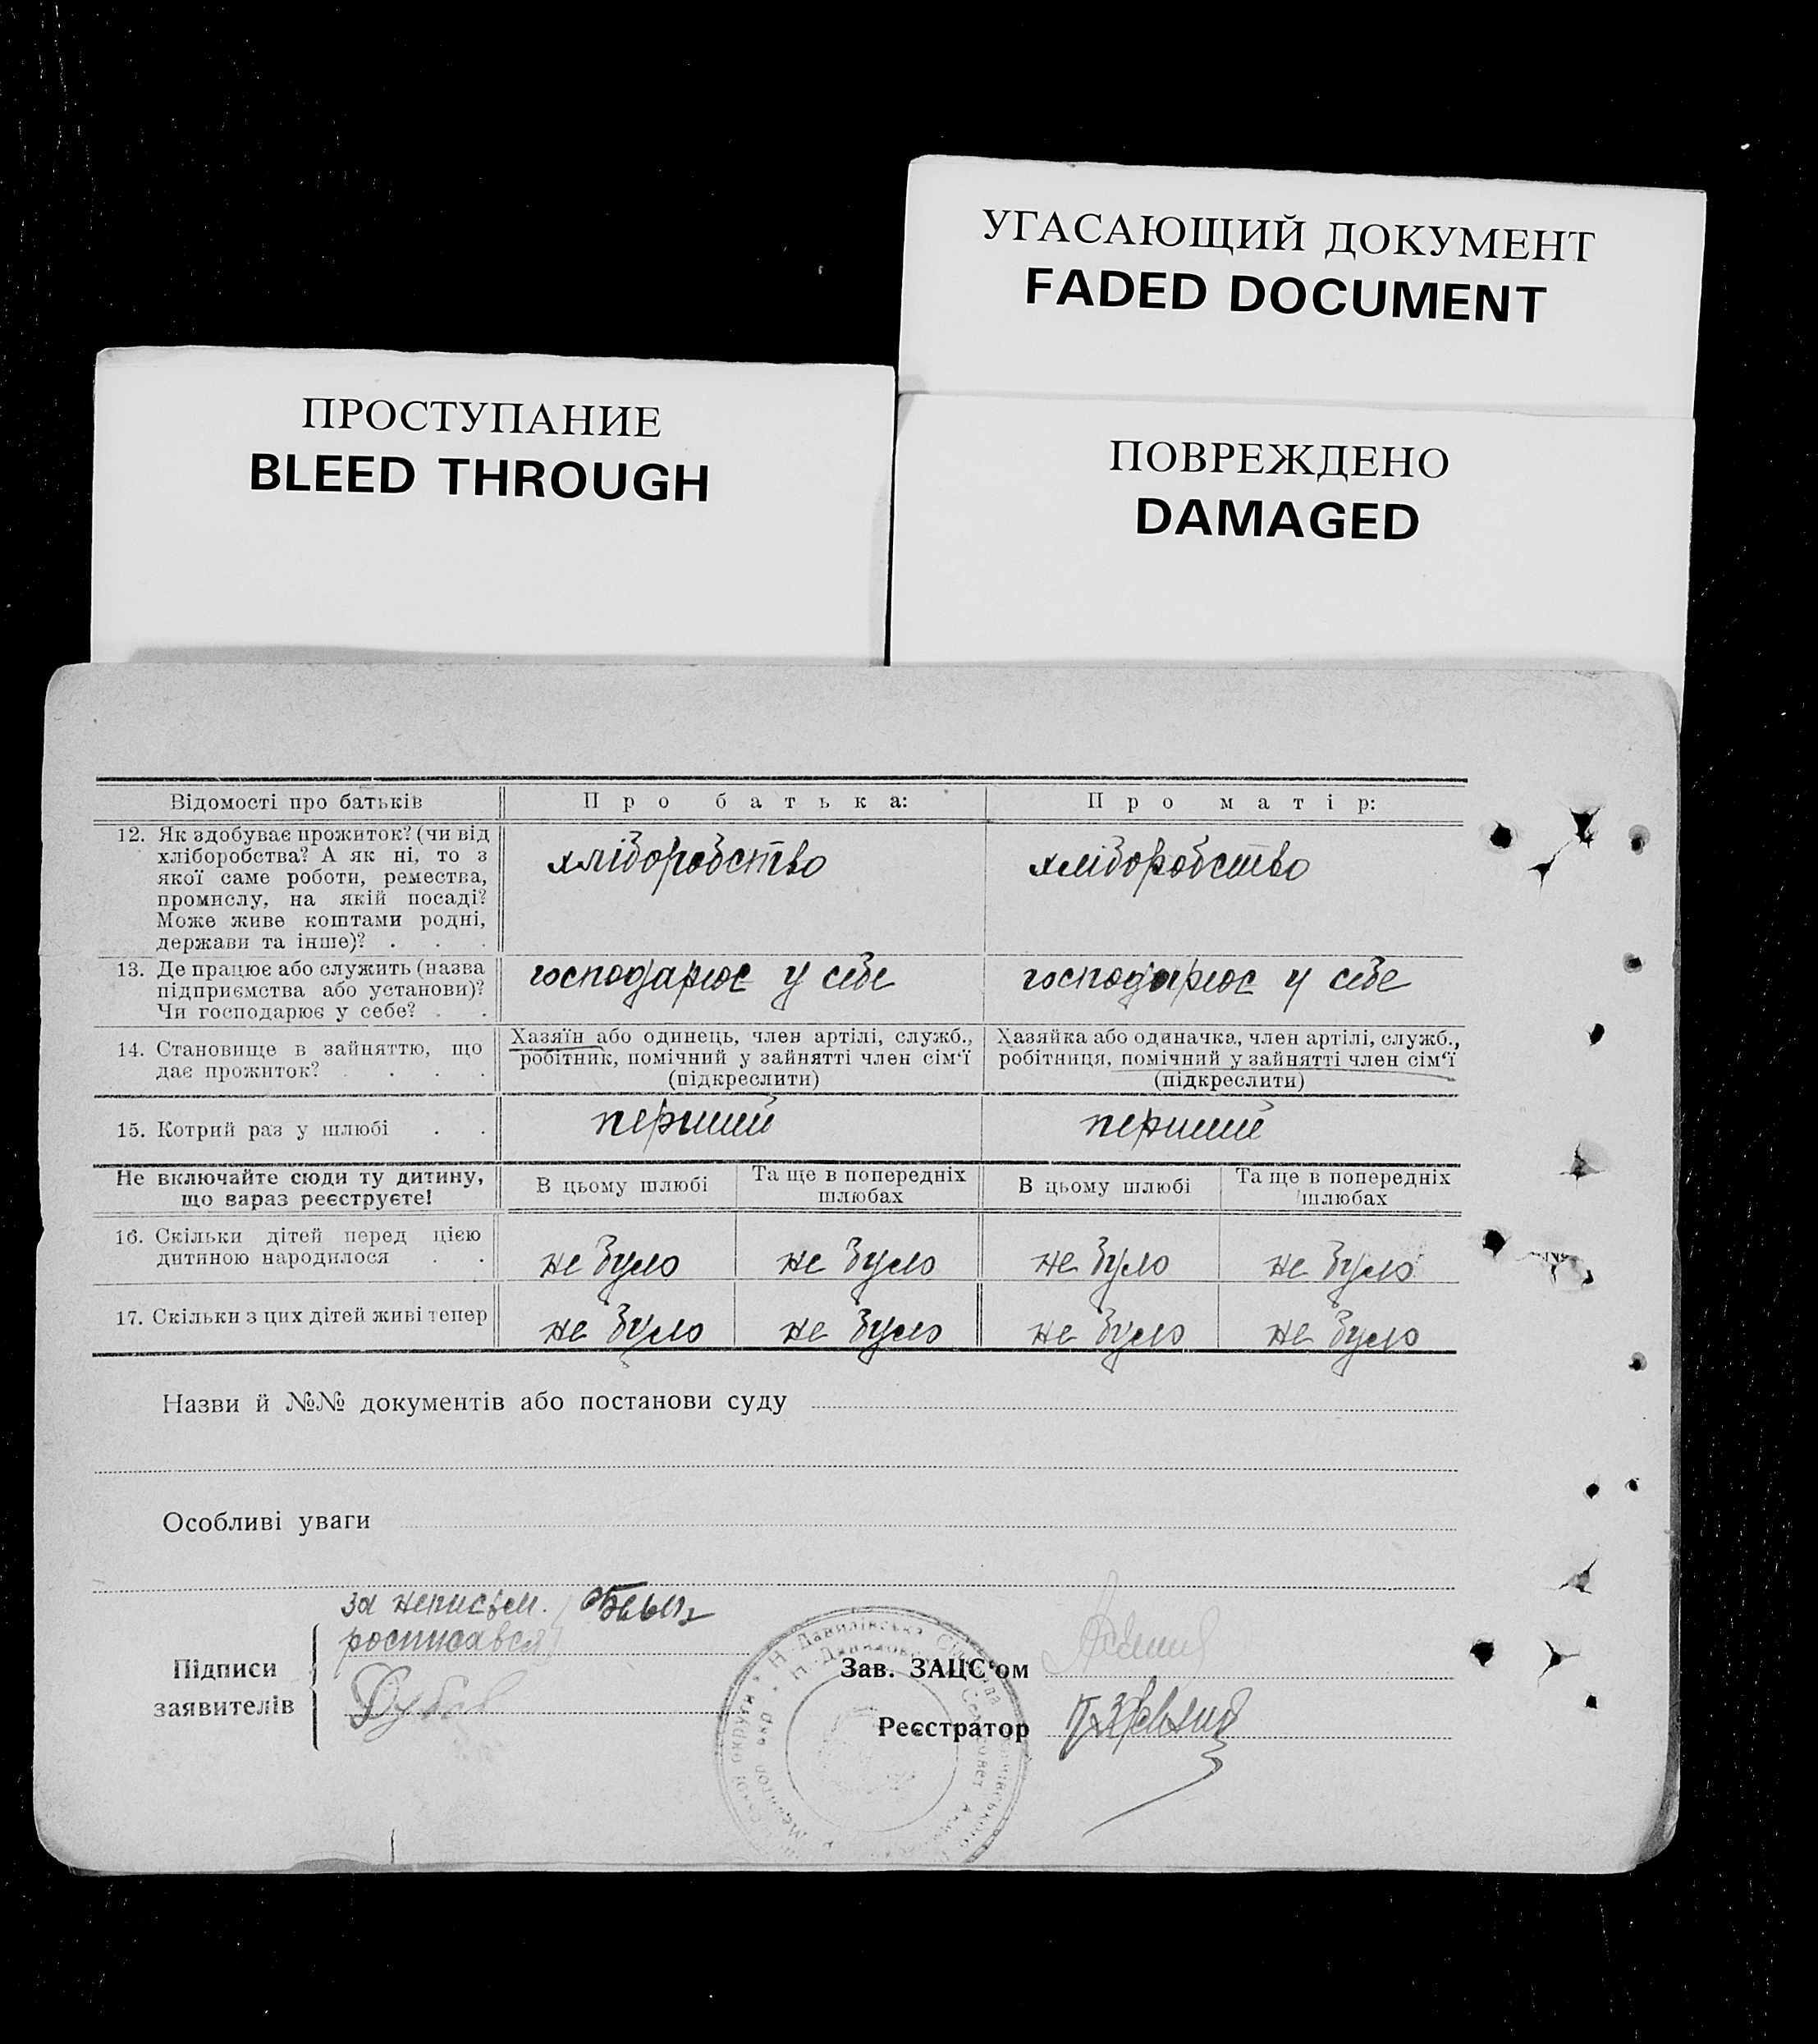 УГАСАЮЩИЙ ДОКУМЕНТ
FADED DOCUMENT
ПРОСТУПАНИЕ
BLEED THROUGH
ПОВРЕЖДЕНО
DAMAGED
Відомості про батьків
Про батька:
Про матір:
12. Як здобуває прожиток? (чи від
хліборобства? А як ні, то з
якої саме роботи, ремества,
промислу, на якій посаді?
Може живе коштами родні,
держави та інше)? . . .
хліборобство
хліборобство
13. Де працює або служить (назва
підприємства або установи)?
Чи господарює у себе? . .
господарює у себе
господарює у себе
14. Становище в зайняттю, що
дає прожиток? . . . .
Хазяїн або одинець, член артілі, служб.,
робітник, помічний у зайнятті член сім‘ї
(підкреслити)
Хазяйка або одиначка, член артілі, служб.,
робітниця, помічний у зайнятті член сім‘ї
(підкреслити)
15. Котрий раз у шлюбі . .
перший
перший
Не включайте сюди ту дитину,
що зараз реєструєте!
В цьому шлюбі
Та ще в попередніх
шлюбах
В цьому шлюбі
Та ще в попередніх
шлюбах
16. Скільки дітей перед цією
дитиною народилося . .
не було
не було
не було
не було
17. Скільки з цих дітей живі тепер
не було
не було
не було
не було
Назви й №№ документів або постанови суду
Особливі уваги
за неписьм.
росписався
Підписи
заявителів
Дубов
Зав. ЗАЦС‘ом
Реєстратор
Н-Данилівська